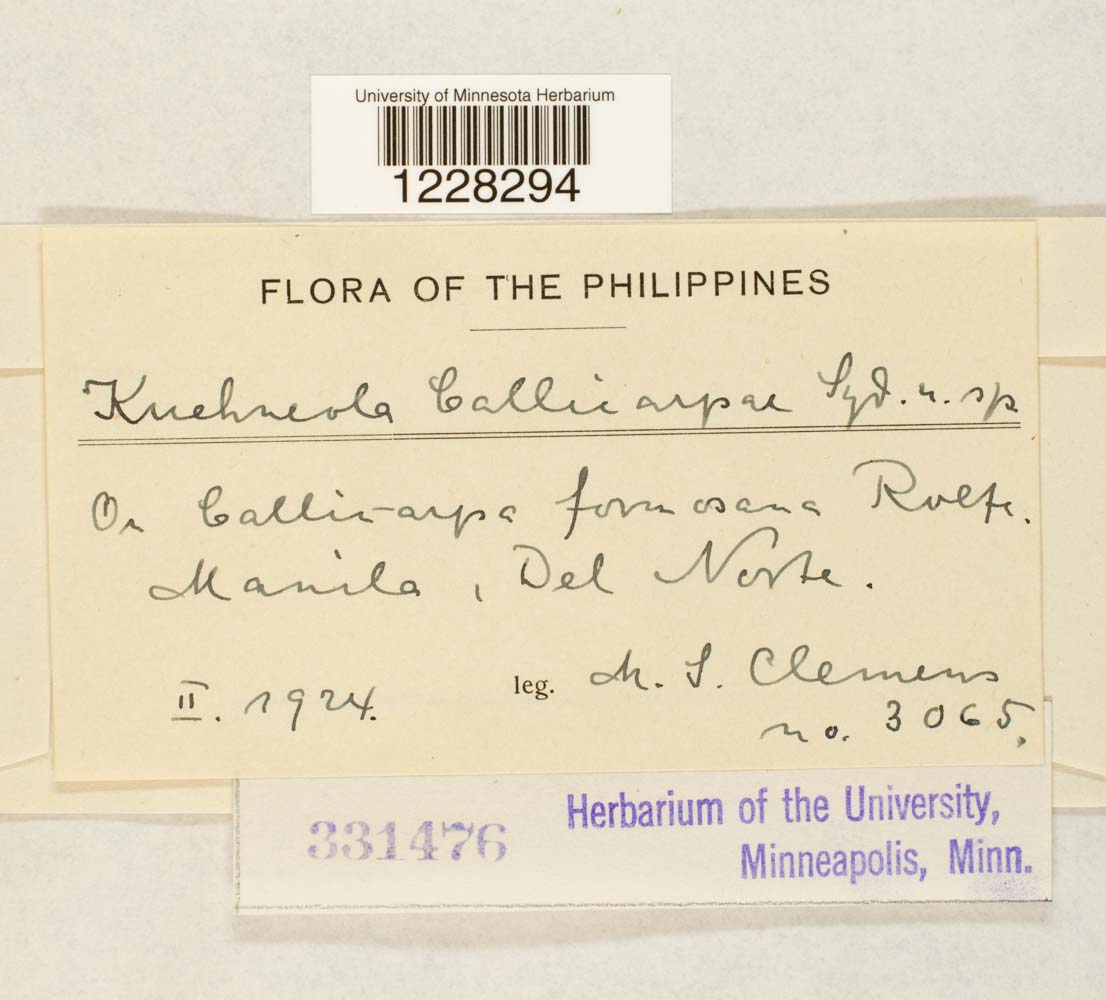 University of Minnesota Herbarium
1228294
FLORA OF THE PHILIPPINES
Kuehneola Callicarpae Syd. n. sp
On Callicarpa formosana Rolfe.
Manila, Del Norte.
II. 1924.
leg. M. S. Clemens
no. 3065.
331476
Herbarium of the University,
Minneapolis, Minn.